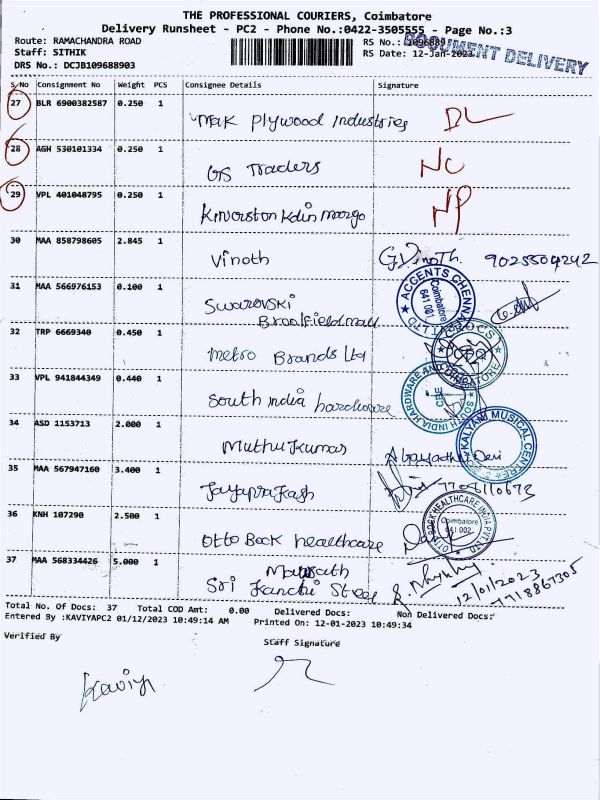 THE PROFESSIONAL COURIERS, Coimbatore
Delivery Runsheet - PC2 - Phone No.:0422-3505555 - Page No.:3
Route: RAMACHANDRA ROAD
RS No.: 1096889
DOCUMENT DELIVERY
Staff: SITHIK
RS Date: 12-Jan-2023
DRS No.: DCJB109688903
S.No Consignment No Weight PCS Consignee Details Signature
27 BLR 6900382587 0.250 1 Mak plywood Industries DL
28 AGH 530101334 0.250 1 GS Traders NC
29 VPL 401048795 0.250 1 NP
30 MAA 858798605 2.845 1 Vinoth G.Vinoth. 9025504242
31 MAA 566976153 0.100 1 Swarovski
Brookfield mall
ACCENTS CHENNAI
Coimbatore
641 001
32 TRP 6669340 0.450 1 Metro Brands Ltd
CROCS
33 VPL 941844349 0.440 1 South india hardware
SOUTH INDIA HARDWARE AND
CBE
34 ASD 1153713 2.000 1 Muthu Kumar
KALYANI MUSICAL CENTRE
35 MAA 567947160 3.400 1 Jayaprakash
36 KNH 107290 2.500 1 Otto Bock healthcare
OTTO BOCK HEALTHCARE INDIA PVT LTD
Coimbatore
641 002
37 MAA 568334426 5.000 1
Sri Kanchi Steel
12/01/2023
7718867305
Total No. Of Docs: 37 Total COD Amt: 0.00 Delivered Docs: Non Delivered Docs:
Entered By :KAVIYAPC2 01/12/2023 10:49:14 AM Printed On: 12-01-2023 10:49:34
Verified By
Staff Signature
Kaviya